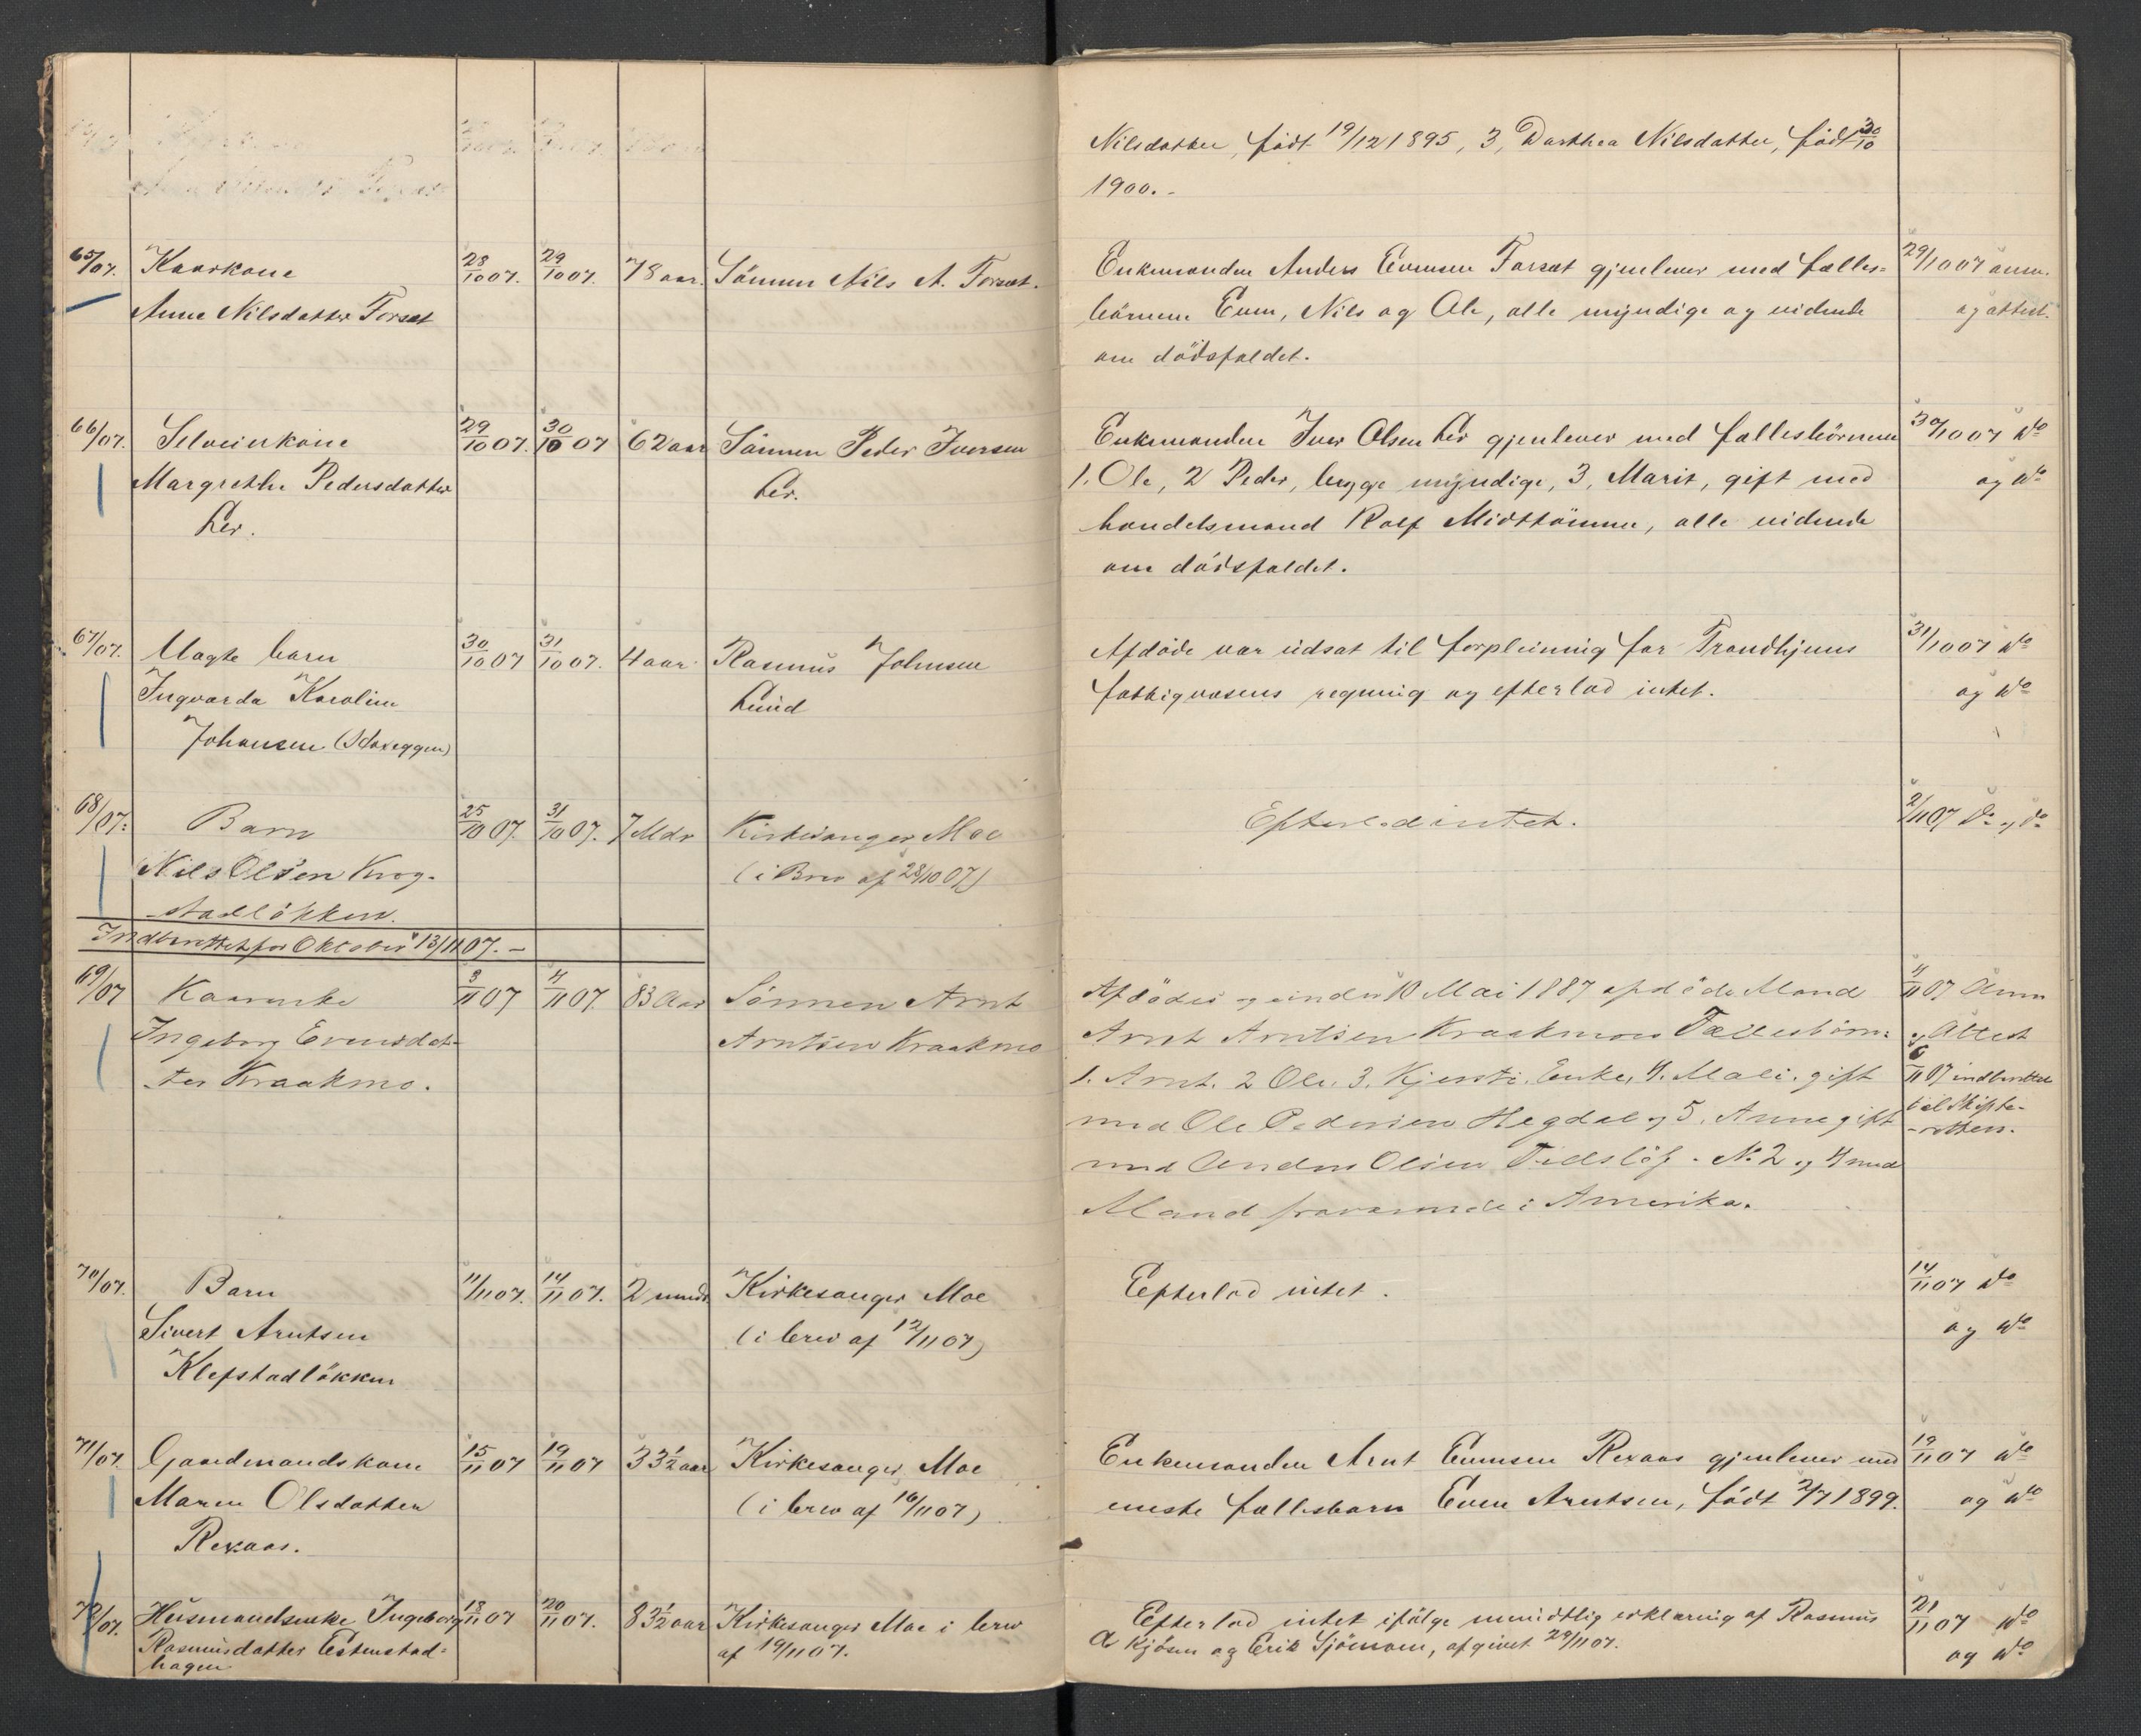 Nilsdatter, födt 19/12 1895, 3, Dorthea Nilsdatter, födt 30/10
1900.-
65/07. Kaarkone 28/10 07. 29/10 07. 78 aar. Sönnen Nils A. Forset. Enkemanden Anders Evensen Forset gjenlever med fælles= 29/10 07 anm.
Anne Nilsdatter Forset börnene Even, Nils og Ole, alle myndige og vidende og attest.
om dödsfaldet.
66/07. Selveierkone 29/10 07. 30/10 07 62 aar Sönnen Peder Iversen Enkemanden Iver Olsen Ler gjenlever med fællesbörnene 30/10 07 do
Margrethe Pedersdatter Ler. 1. Ole, 2 Peder, begge myndige, 3, Marit, gift med og do
Ler. handelsmand Rolf Midttömme, alle vidende
om dödsfaldet.
67/07. Ulagte barn 30/10 07 31/10 07. 4 aar. Rasmus Johnsen Afdöde var udsat til forpleining for Trondhjems 31/10 07 do
Ingvarda Karoline Lund fattigvæsens regning og efterlod intet. og do
Johansen (Staxeggen)
68/07. Barn 25/10 07. 31/10 07. 7 Mdr Kirkesanger Moe Efterlod intet. 2/11 07 do og do
Nils Olsen Krog- (i Brev af 28/10 07)
stadlökken.
Indberettet for Oktober 13/11 07. -
69/07 Kaarenke 3/11 07 4/11 07. 83 Aar Sönnen Arnt Afdödes og under 10 Mai 1887 afdöde Mand 4/11 07 Anm
Ingeborg Evensdat- Arntsen Kraakmo Arnt Arntsen Kraakmoes Fællesbörn: og Attest
ter Kraakmo. 1. Arnt. 2 Ole. 3. Kjersti, Enke, 4. Mali. gift 6/11 07 indberettet
med Ole Pedersen Hegdal og 5. Anne gift til Skifte-
med Anders Olsen Tillslöf. No 2 og 4 med -retten.
Mand fraværende i Amerika.
70/07. Barn 11/11 07. 14/11 07. 2 mndr. Kirkesanger Moe Efterlod intet. 14/11 07 do
Sivert Arntsen (i brev af 12/11 07) og do
Klefstadlökken
71/07. Gaardmandskone 15/11 07 19/11 07 33 1/2 aar Kirkesanger Moe Enkemanden Arnt Evensen Rexaas gjenlever med 19/11 07 do
Maren Olsdatter (i brev af 16/11 07) eneste fællesbarn Even Arntsen, födt 2/7 1899. og do
Rexaas.
72/07. Husmandsenke Ingeborg 18/11 07 20/11 07. 83 1/2 aar Kirkesanger Moe i brev Efterlod intet ifölge mundtlig erklæring af Rasmus 21/11 07 do
Rasmusdatter Estenstad= af 19/11 07. A Kjösen og Erik Sjömoen, afgivet 29/11 07. og do
hagen